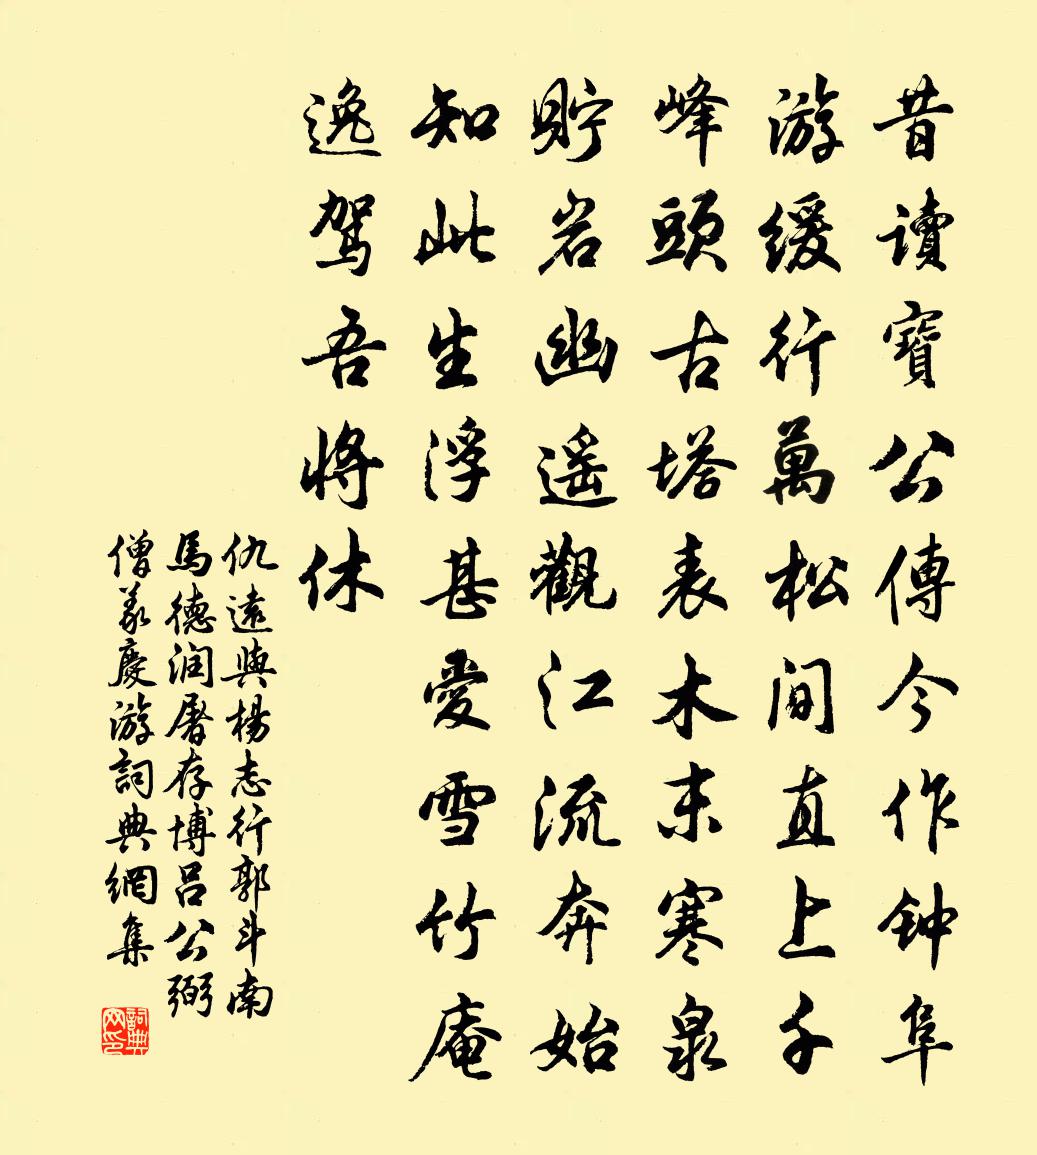 昔讀寶公傳今作钟阜
游緩行萬松间直上千
峰頭古塔表木末寒泉
貯岩幽遥觀江流奔始
知此生浮甚愛雪竹庵
逸驾吾将休
仇遠與楊志行郭斗南
馬德润屠存博吕公弼
僧義慶游詞典網集
詞典网印